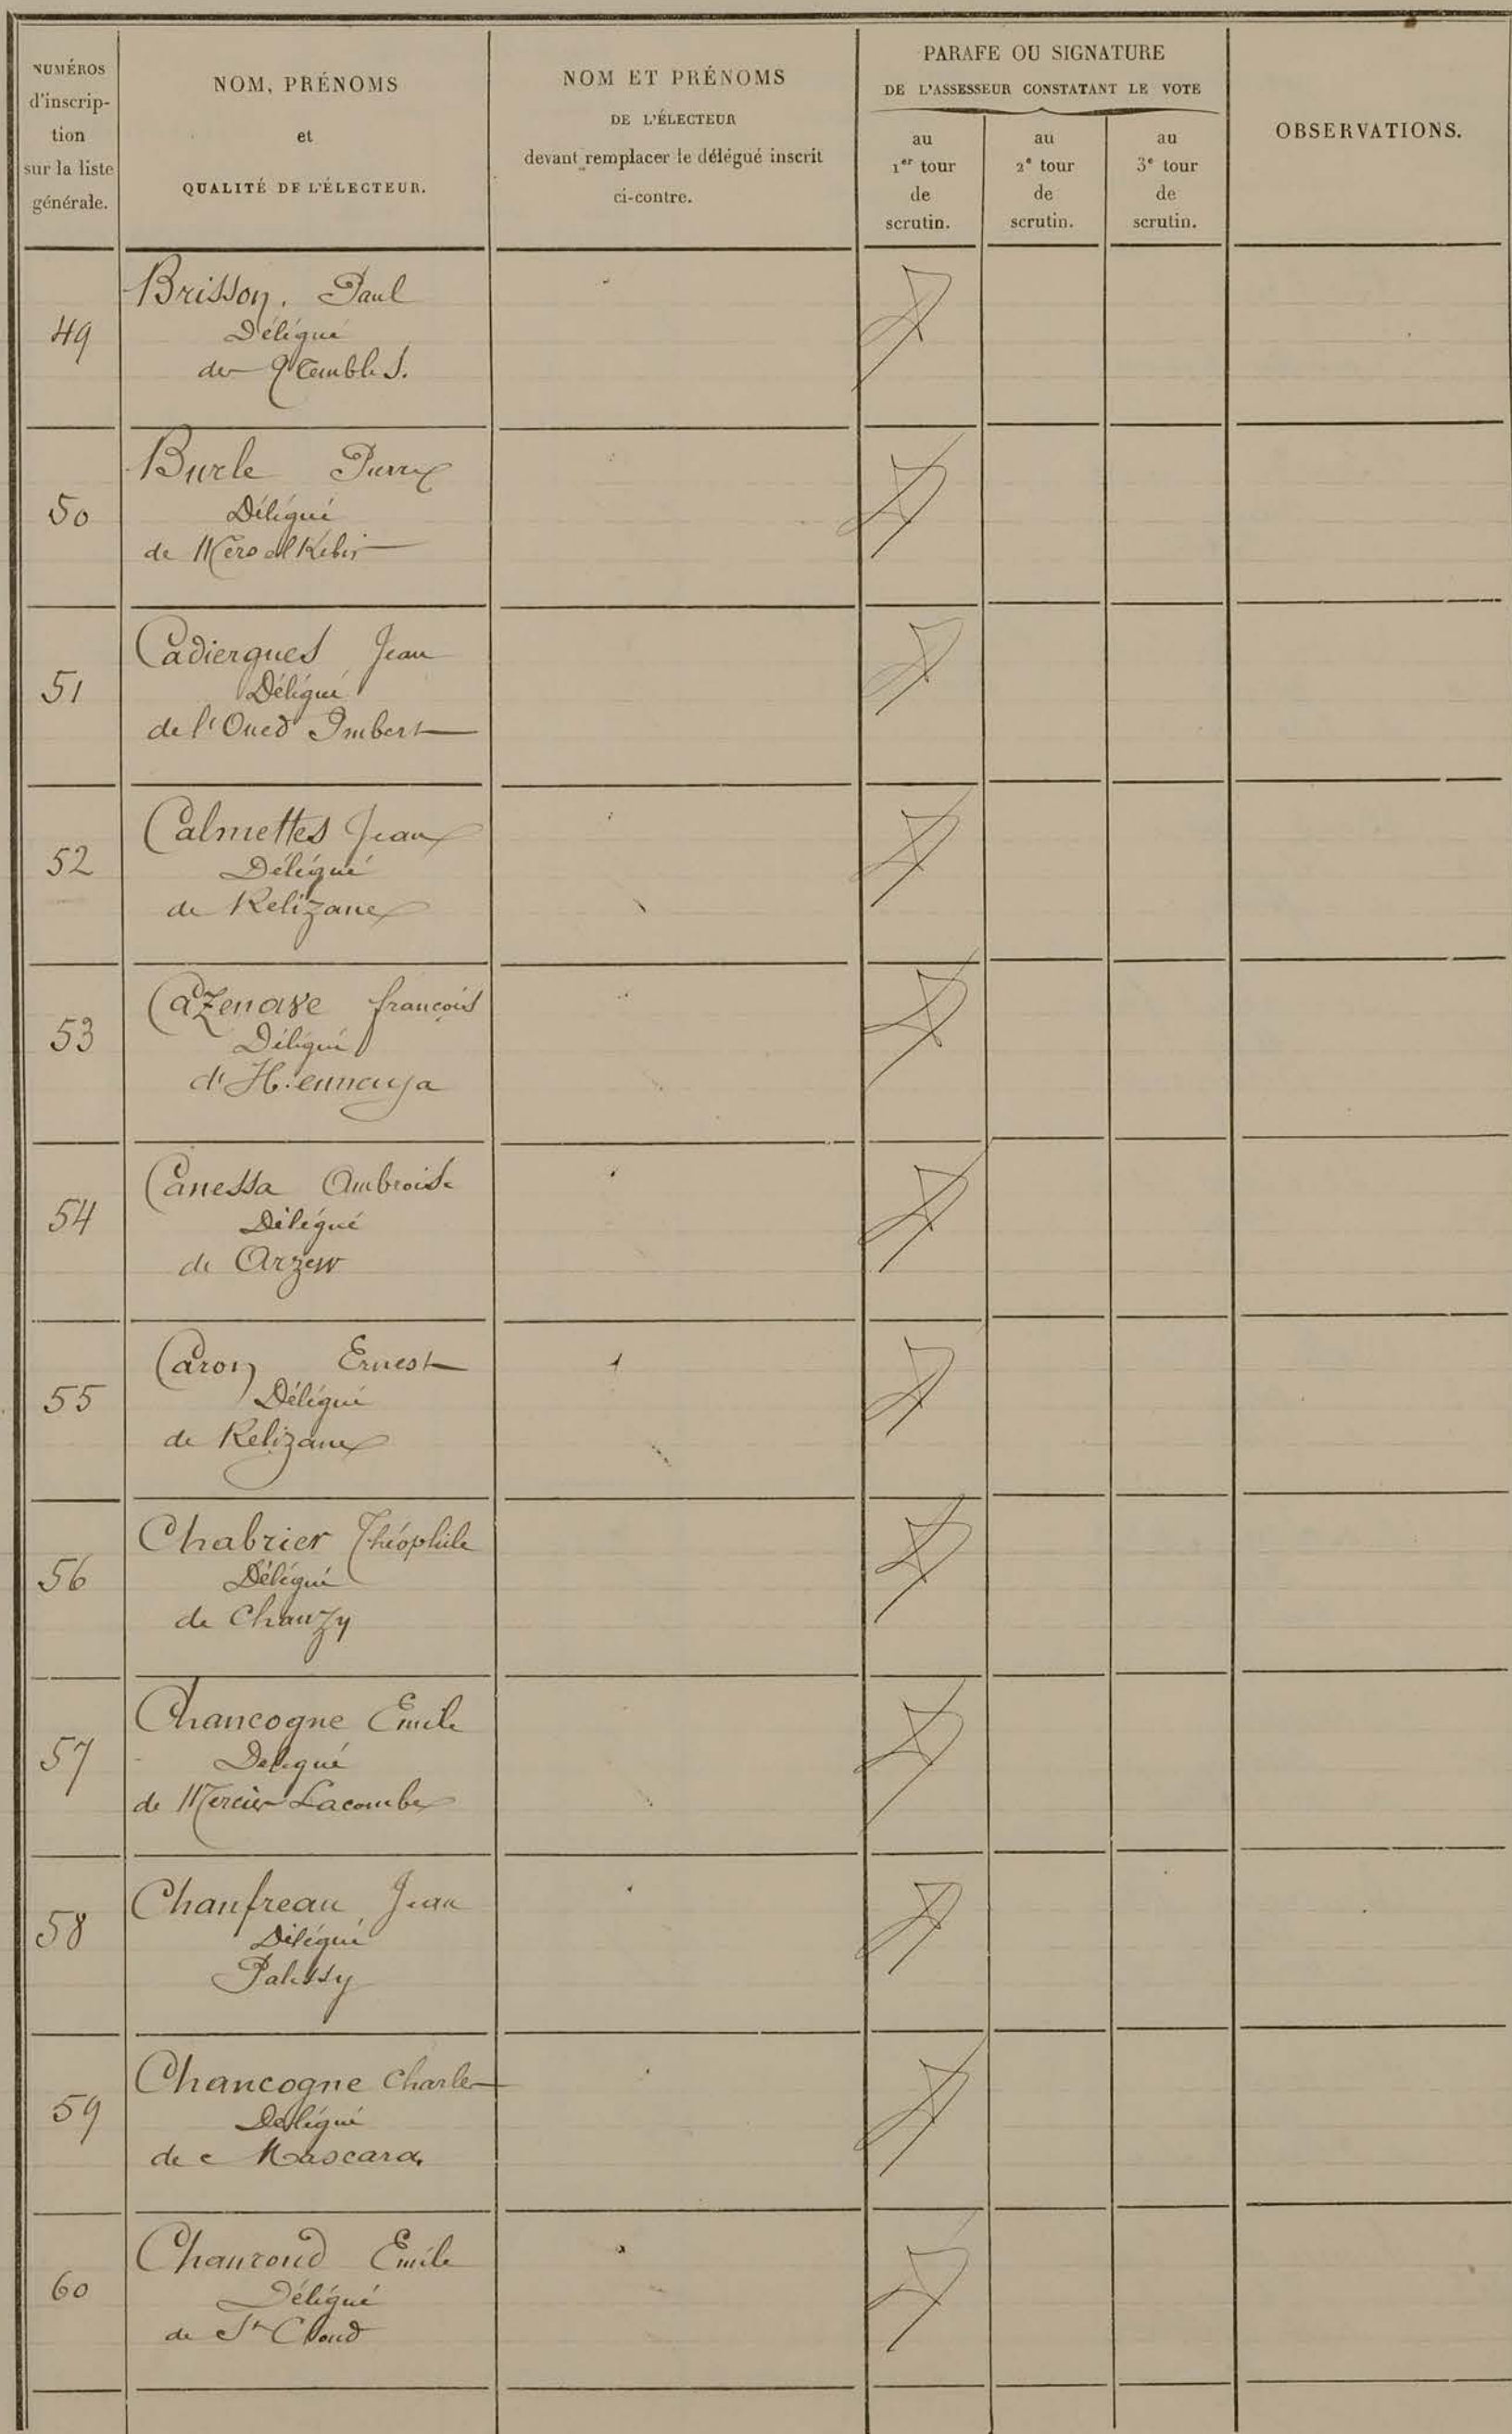 NUMÉROS
d'inscrip-
tion
sur la liste
générale.
NOM, PRÉNOMS
et
QUALITÉ DE L'ÉLECTEUR.
NOM ET PRÉNOMS
DE L'ÉLECTEUR
devant remplacer le délégué inscrit
ci-contre.
PARAFE OU SIGNATURE
DE L'ASSESSEUR CONSTATANT LE VOTE
au
1er tour
de
scrutin.
au
2e tour
de
scrutin.
au
3e tour
de
scrutin.
OBSERVATIONS.
49
Brisson, Paul
Délégué
de
50
Burle Pierre
Délégué
de Mers el Kebir
51
Cadiergues Jean
Délégué
de l'Oued Imbert
52
Calmettes Jean
Délégué
de Relizane
53
Cazenave françois
Délégué
d'Hennaya
54
Canessa Ambroise
Délégué
de Arzew
55
Caron Ernest
Délégué
de Relizane
56
Chabrier Théophile
Délégué
de Chanzy
57
Chancogne Emile
Delegué
de Mercier Lacombe
58
Chanfreau Jean
Délégué
Palissy
59
Chancogne Charles
Délégué
de Mascara
60
Chauroud Emile
Délégué
de St Cloud